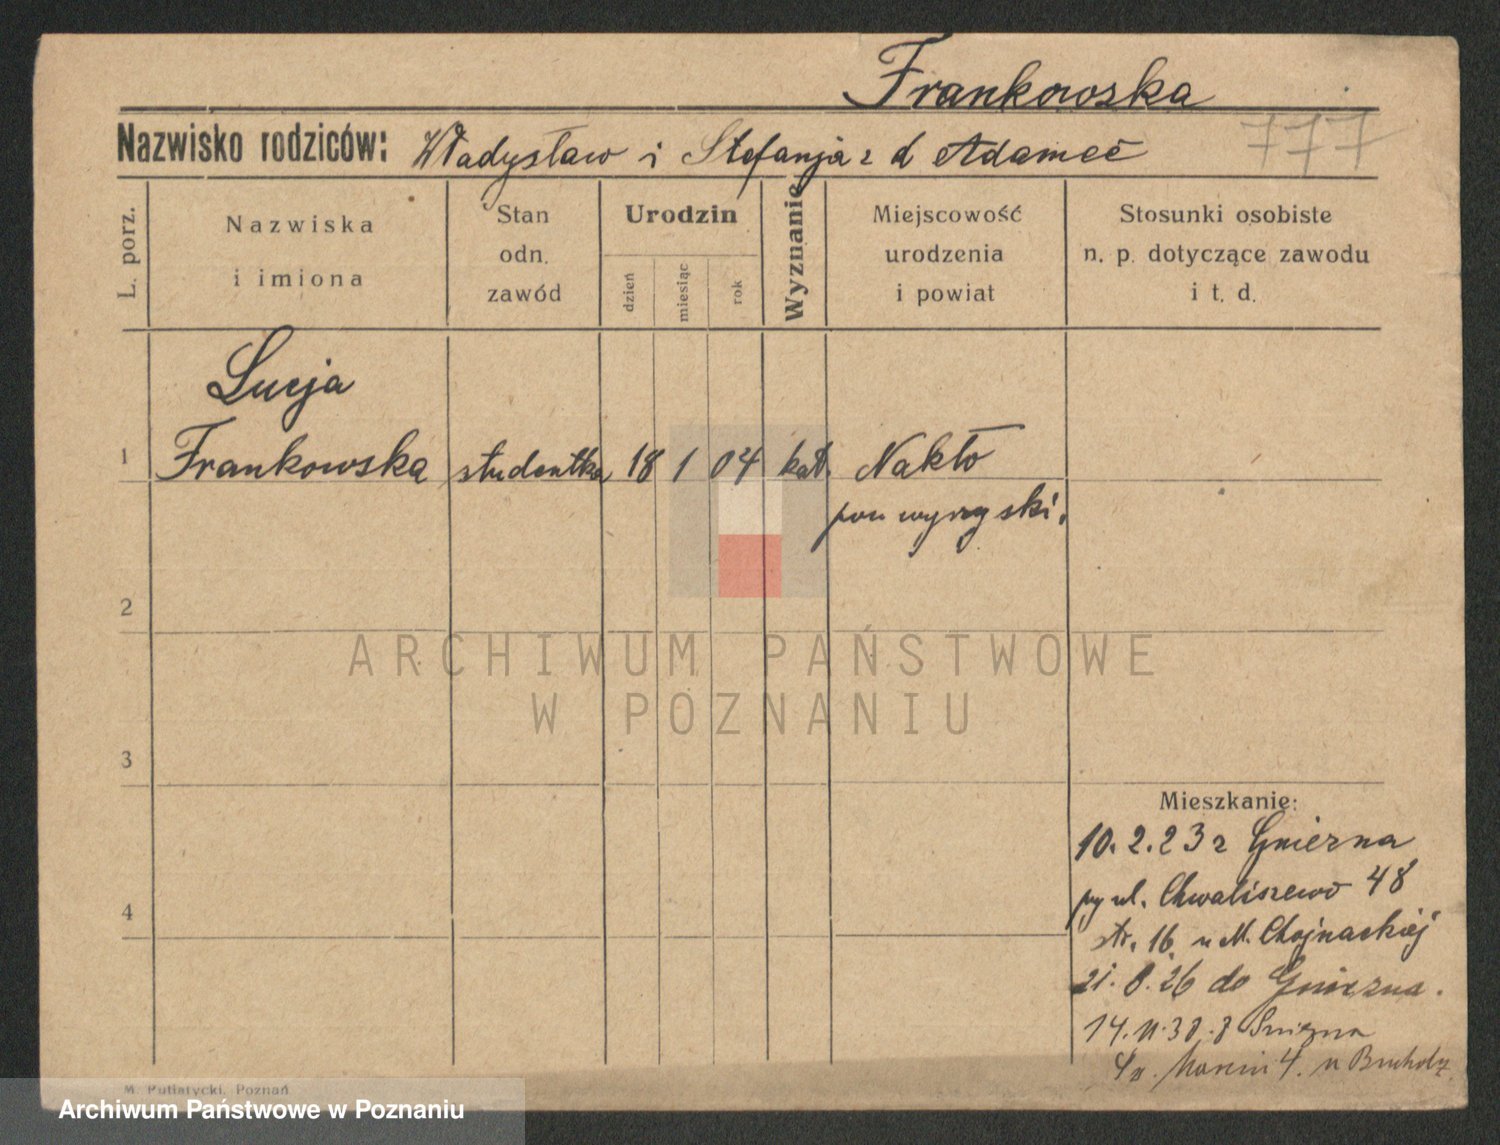 Frankowska
777
Nazwisko rodziców: Władysław i Stefanja z d Adameć
L. porz.
Nazwiska
i imiona
Stan
odn.
zawód
Urodzin
dzień
miesiąc
rok
Wyznanie
Miejscowość
urodzenia
i powiat
Stosunki osobiste
n. p. dotyczące zawodu
i t. d.
Lucja
1 Frankowska studentka 18 1 04 kat. Nakło
pow wyrzyski.
2
ARCHIWUM PAŃSTWOWE
W POZNANIU
3
4
Mieszkanie:
10.2.23 z Gniezna
ul. Chwaliszewo 48
str. 16. u M. Chojnackiej
21.8.26 do Gniezna.
14.11.38. Gniezna
Marcin 4. u
M. Putiatycki, Poznań
Archiwum Państwowe w Poznaniu